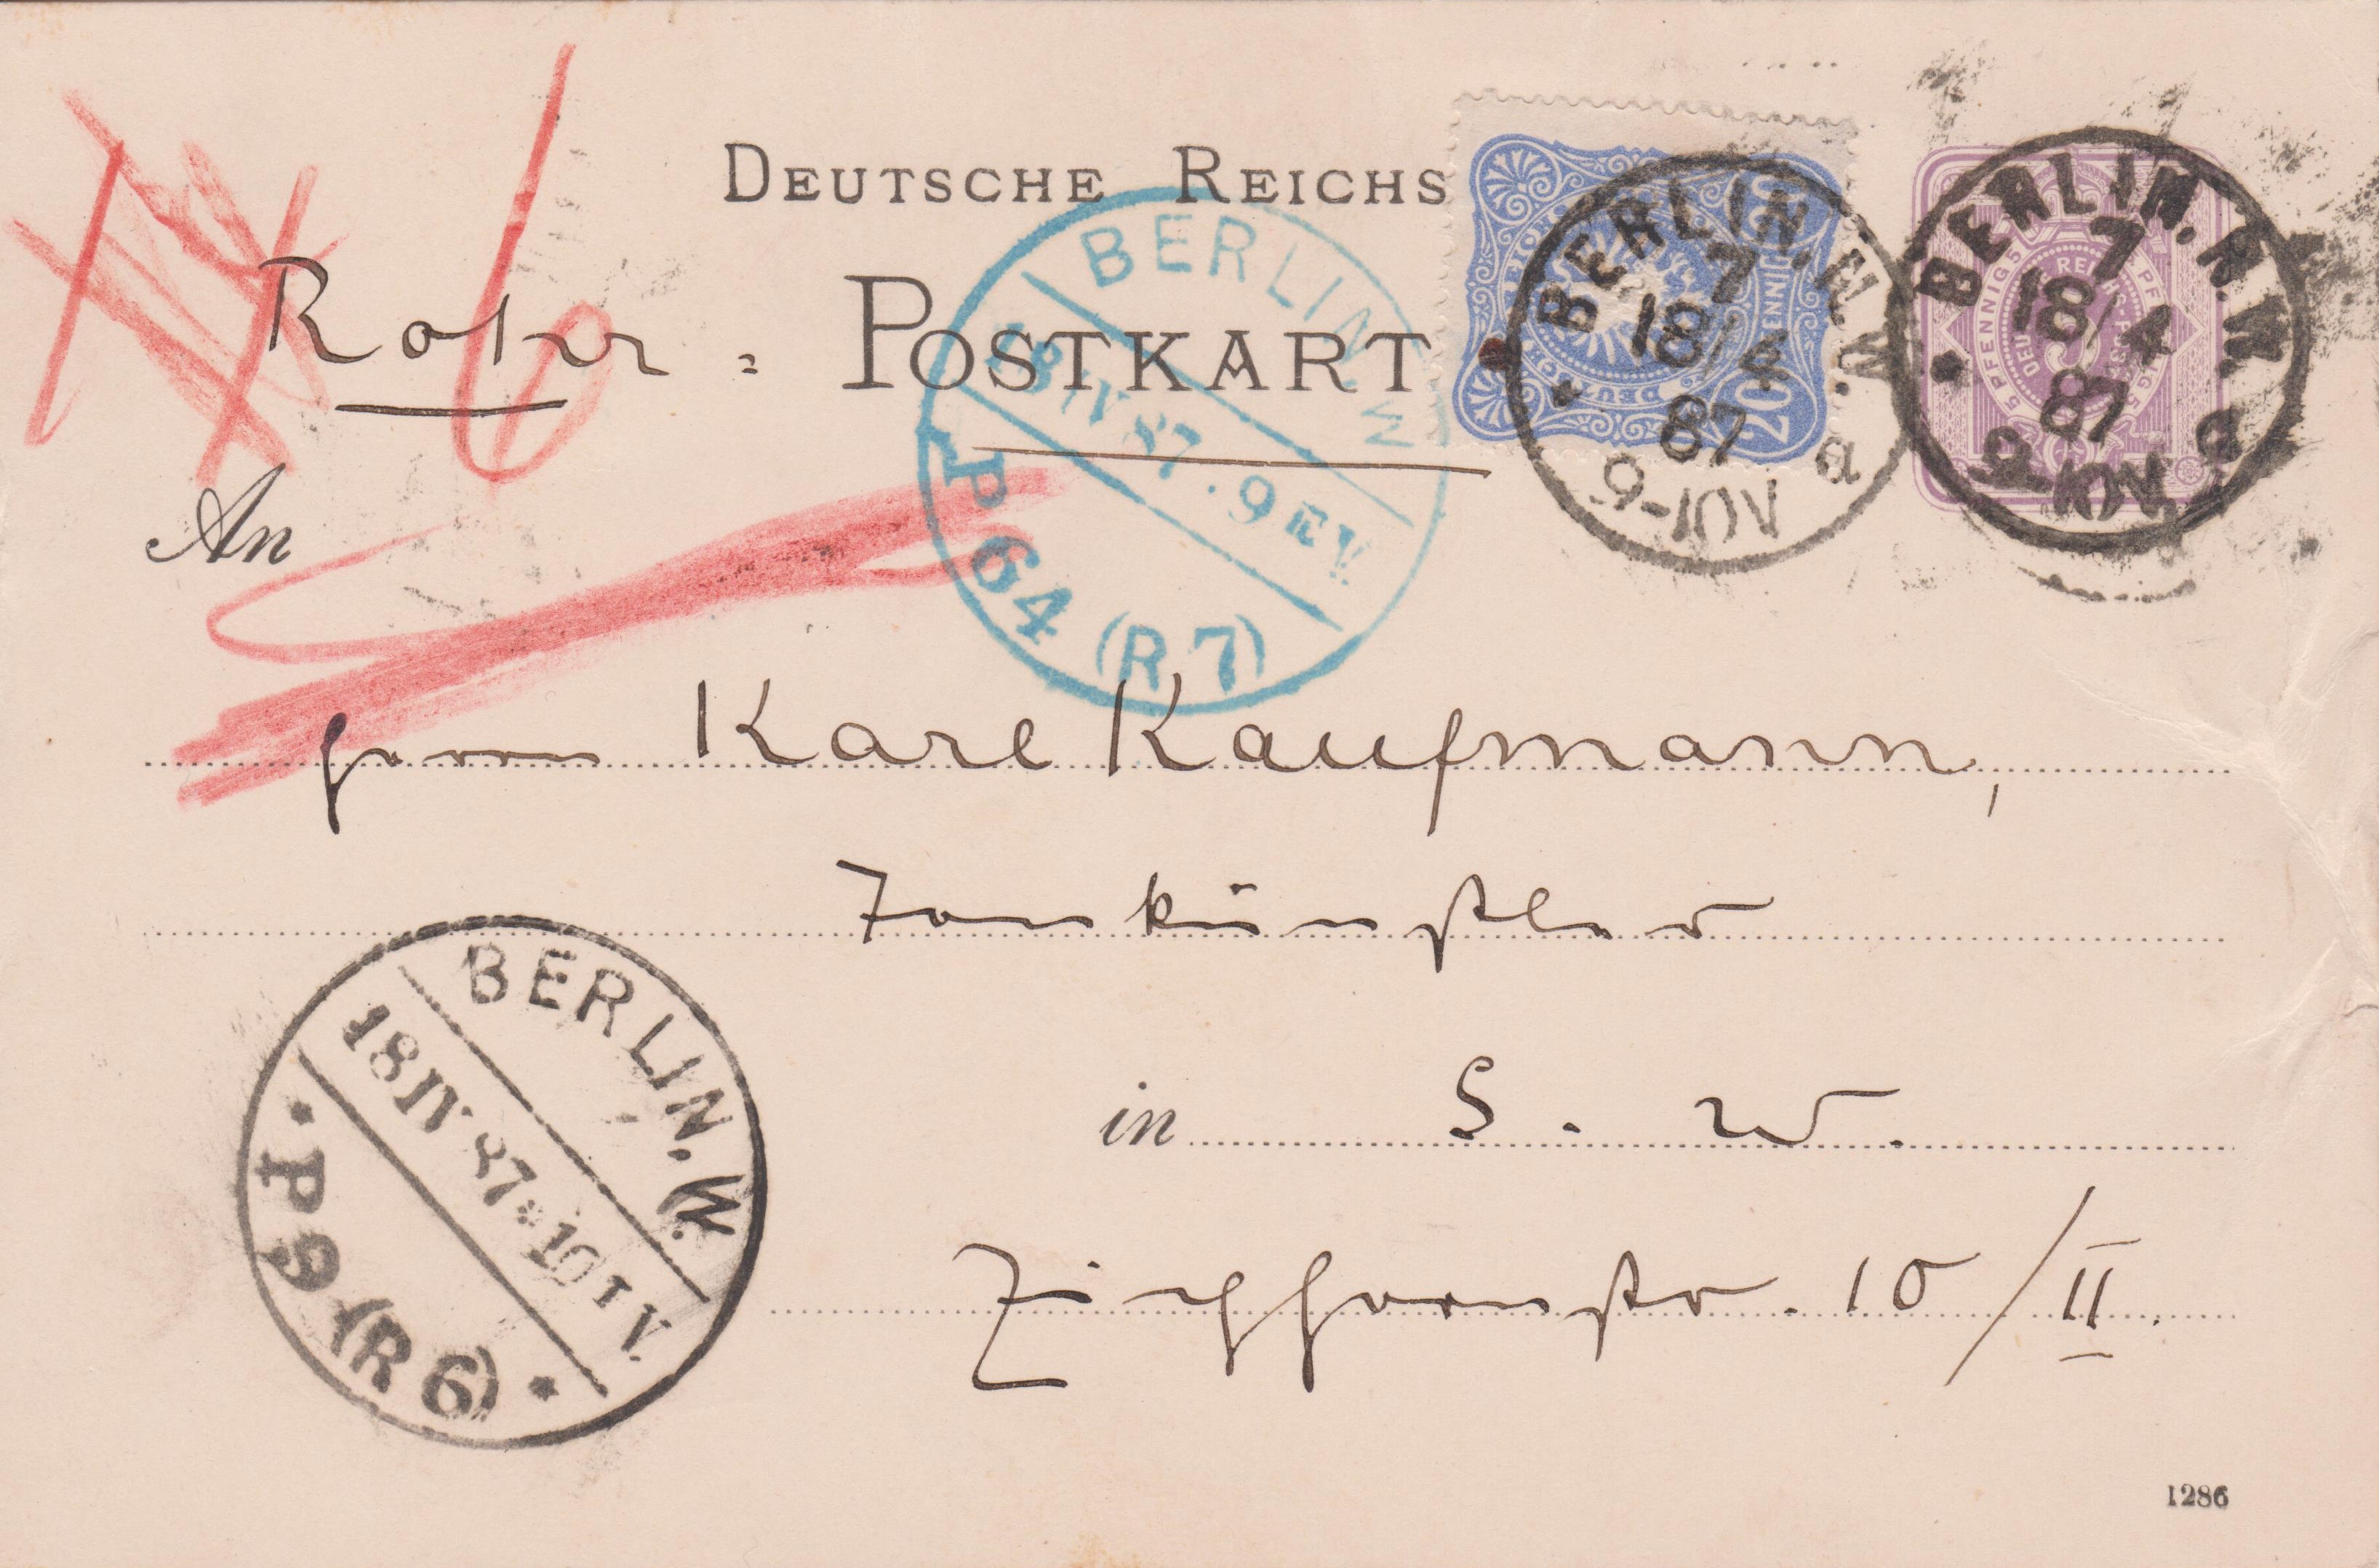 DEUTSCHE REICHS
Rohr = POSTKART
An
BERLIN. N.W. 7
18/4
87
9-10V.
a
20 PFENNIG
BERLIN. N.W. 7
18/4
87
9-10V.
a
5 PFENNIG 5
BERLIN. W
18 IV 87. 9 V.
P 64 (R 7)
Herrn Karl Kaufmann,
Tonkünstler
in S. W.
str. 10/II.
BERLIN. W.
18 IV 87 * 10 V.
* P 9 (R 6) *
1286